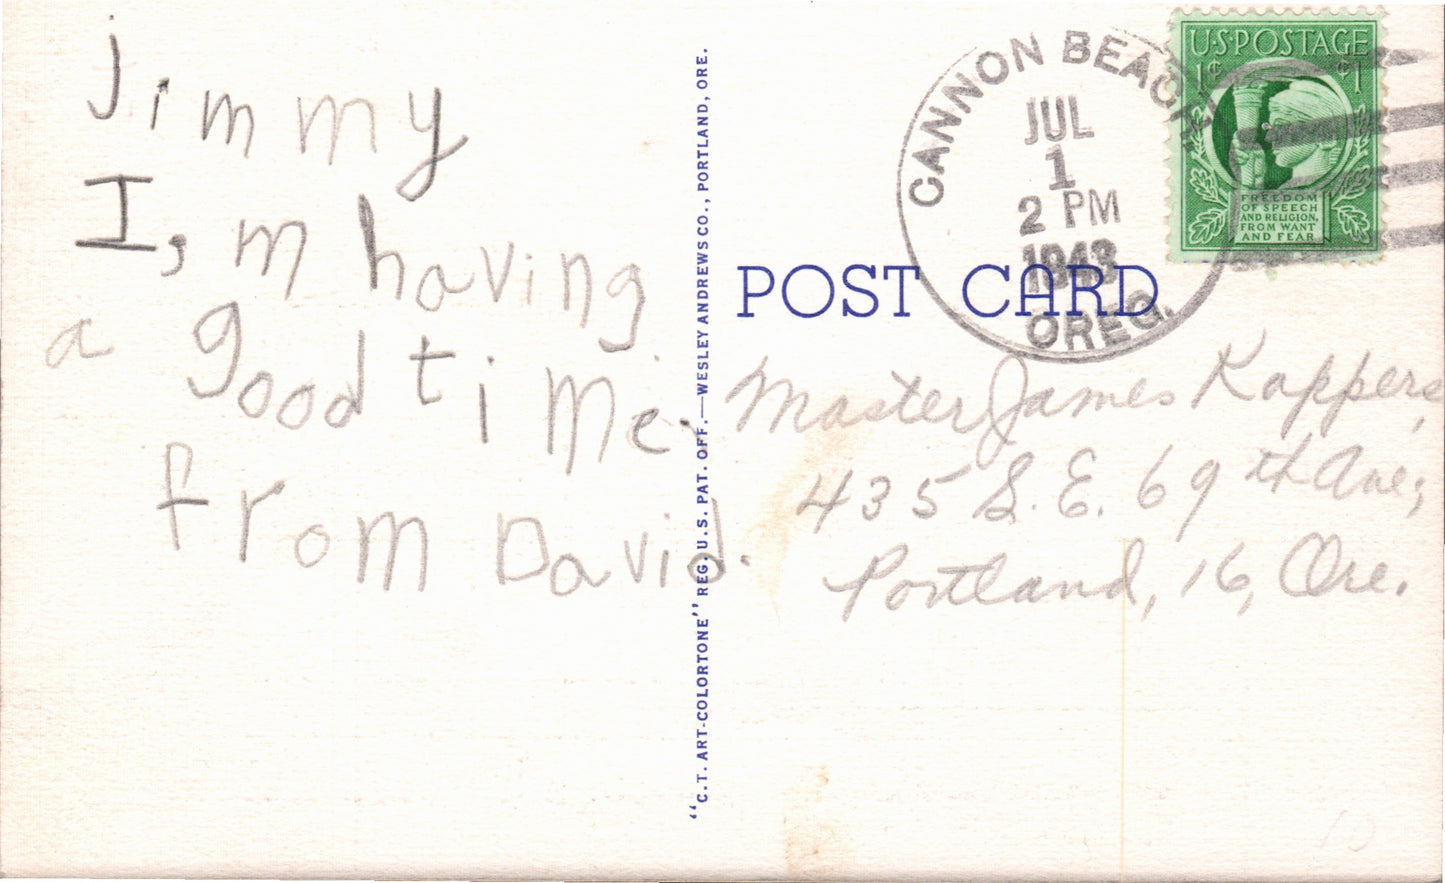 Jimmy
I,m having
a good time.
from David.
"C.T. ART-COLORTONE" REG. U.S. PAT. OFF.—WESLEY ANDREWS CO., PORTLAND, ORE.
CANNON BEACH
JUL
1
2 PM
1943
OREG.
U·S·POSTAGE
1¢ ¢1
FREEDOM
OF SPEECH
AND RELIGION,
FROM WANT
AND FEAR
POST CARD
Master James Kappers,
435 S.E. 69th Ave,
Portland, 16, Ore.